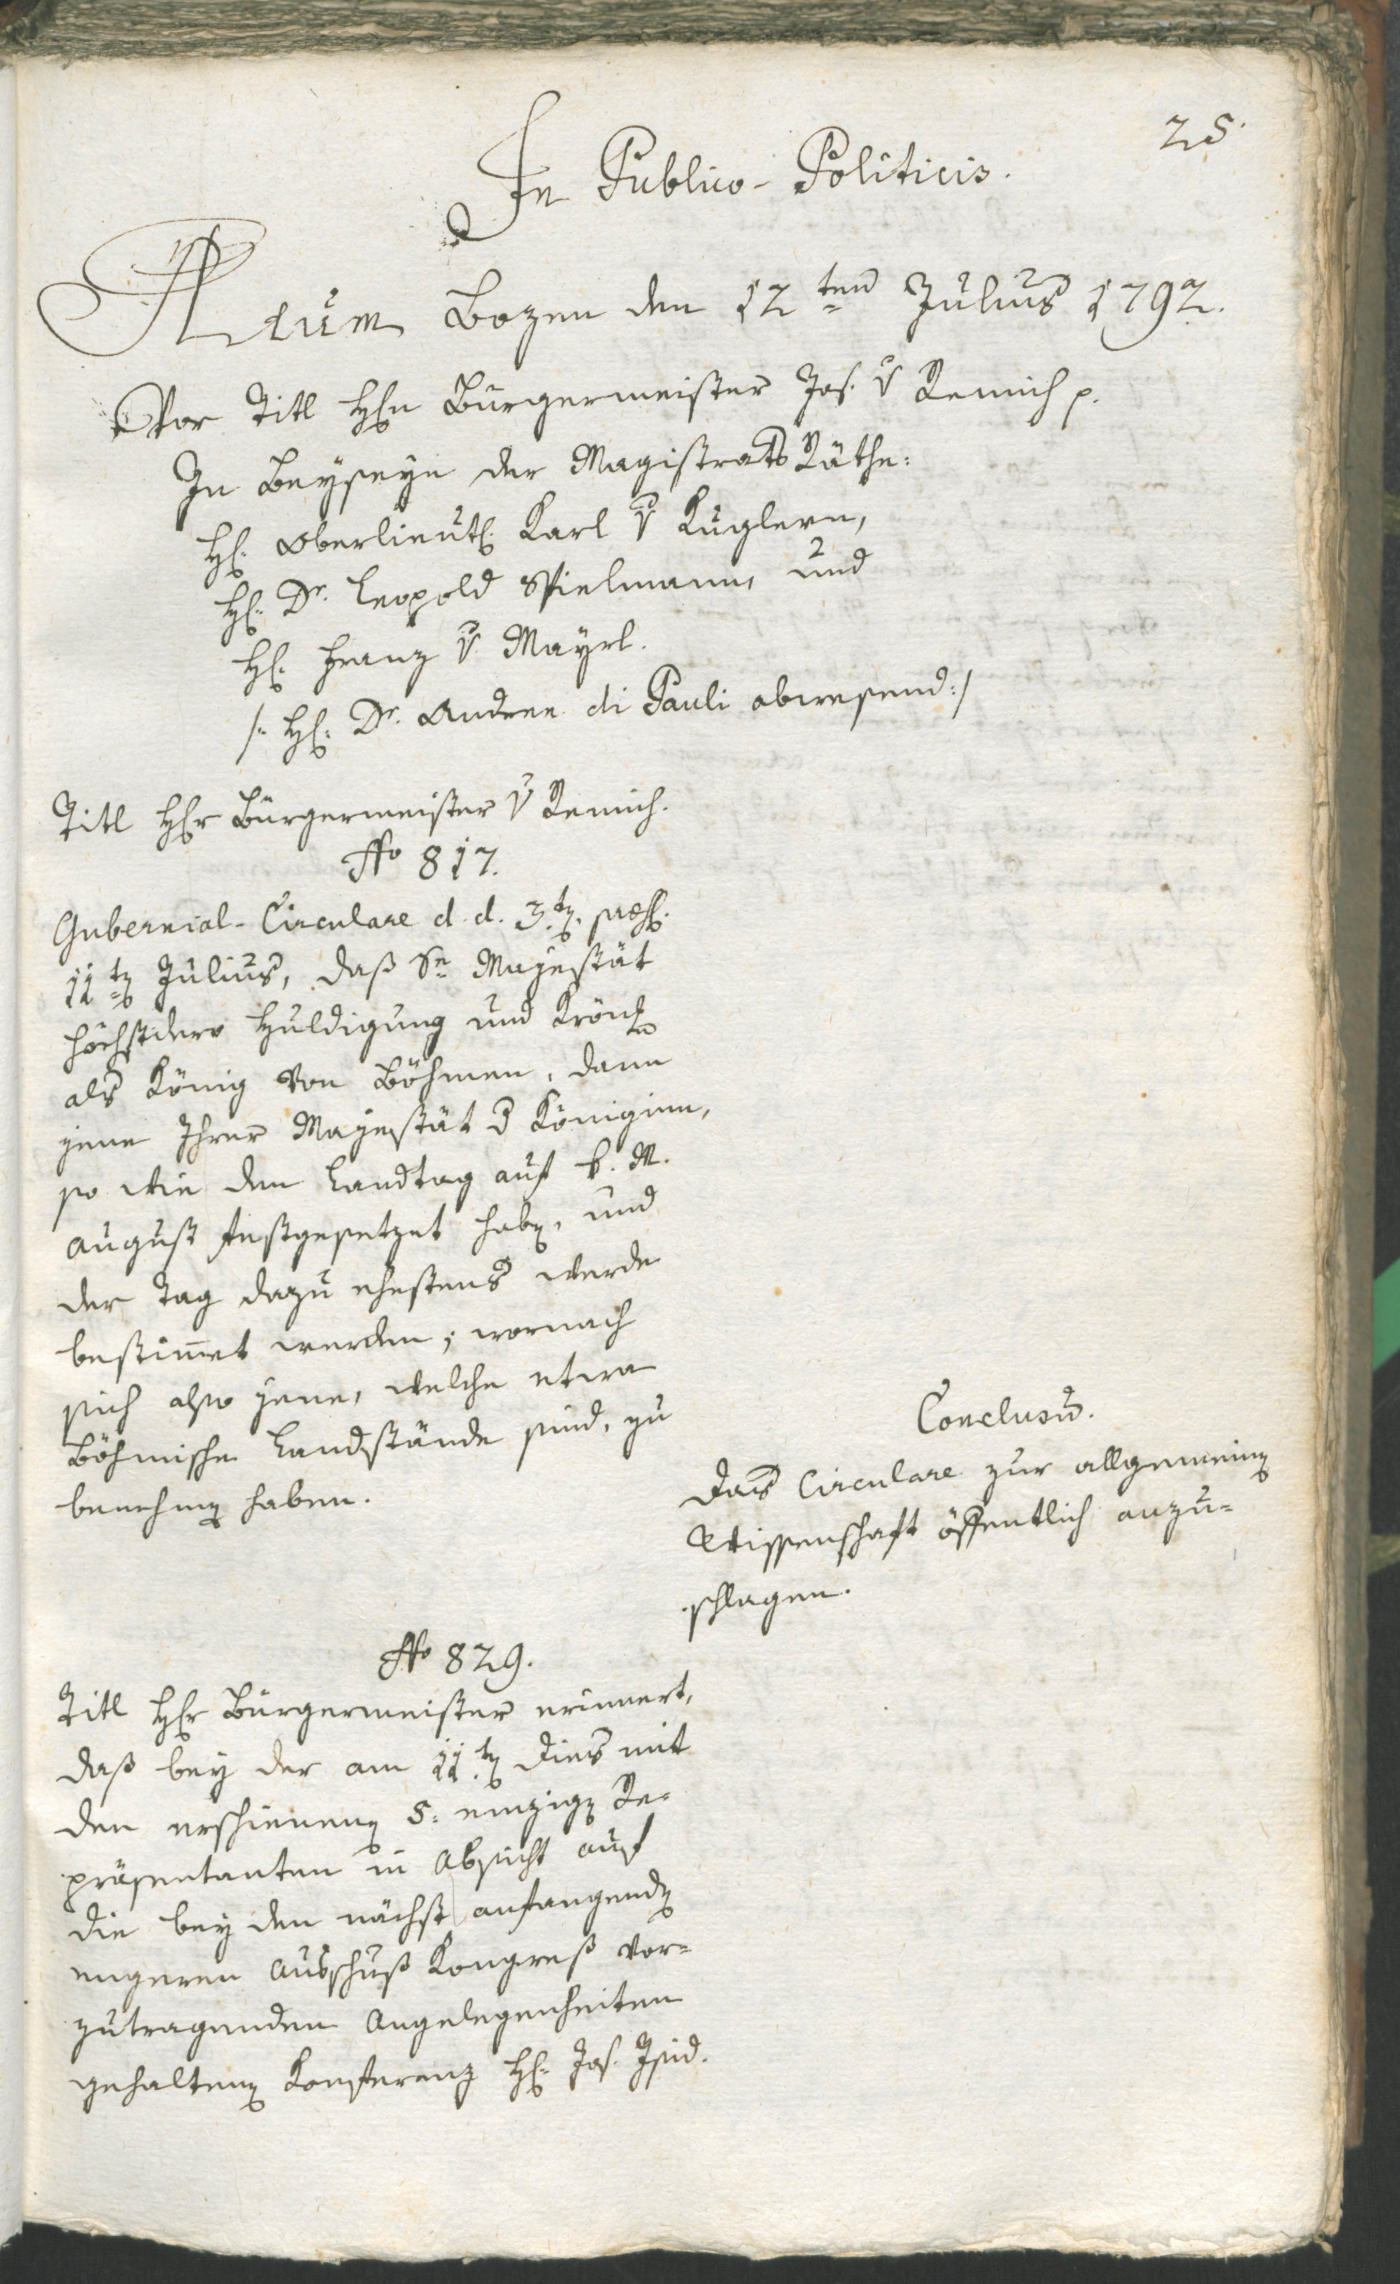 25.
In Publico-Politicis.
Actum Bozen den 12ten Julius 1792.
Vor Titl Hℓn Bürgermeister Jos. v Remich p.
In Beyseyn der Magistrats Räthe:
Hℓ. Oberlieutℓ. Karl v Kuglern,
Hℓ. Dr. Leopold Spielmann, und
Hℓ. Franz v Mayrl.
/: Hℓ. Dr. Andree di Pauli abwesend :/
Titl Hℓr Bürgermeister v Remich.
No 817.
Gubernial-Circulare d. d. 3.t. præs.
11t. Julius, daß Se Majestät
höchstdero Huldigung und Krönℓ
als König von Böhmen, dann
jene Ihrer Majestät d Königinn,
so wie den Landtag auf k. M.
August festgesetzet habe, und
der Tag dazu ehestens werde
bestim̄et werden; wornach
sich also jene, welche etwa
Böhmische Landstände sind, zu
benehmen haben.
Conclusū.
Das Circulare zur allgemeinen
Wissenschaft öffentlich anzu=
schlagen.
No 829.
Titl Hℓr Bürgermeister erinnert,
daß bey der am 11.t. dies mit
den erschienenen 5. einzigen Re=
präsentanten in Absicht auf
die bey den nächst anfangenden
engeren Ausschuß Kongreß vor=
zutragenden Angelegenheiten
gehaltenen Konferenz Hℓ. Jos. Isid.